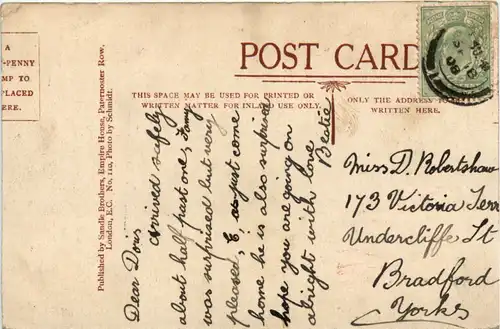 A
-PENNY
MP TO
PLACED
ERE.
Published by Sandle Brothers, Empire House, Paternoster Row,
London, E.C. No. 110, Photo by Schmidt.
POST CARD
THIS SPACE MAY BE USED FOR PRINTED OR
WRITTEN MATTER FOR INLAND USE ONLY.
ONLY THE ADDRESS TO BE
WRITTEN HERE.
Dear Doris
arrived safely
about half past one,
was surprised but very
pleased, just come
home he is also surprised
hope you are going on
alright with love
Beatie
Miss D. Robertshaw
173 Victoria Terr
Undercliffe St
Bradford
Yorks